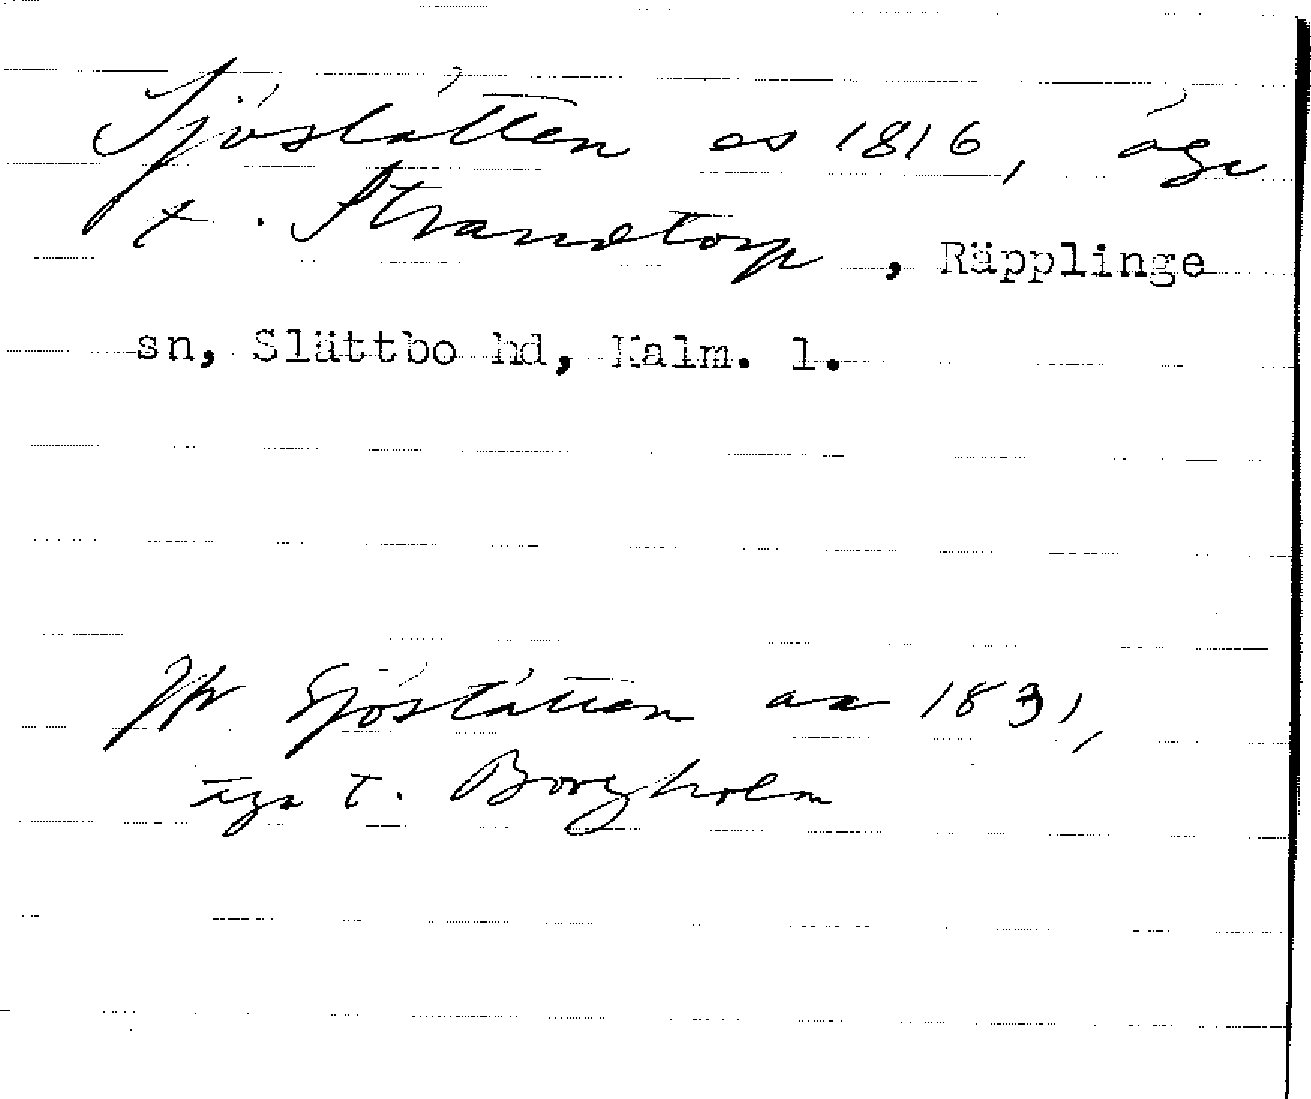 Sjöslätten es 1816, äga
t. Strandtorp, Räpplinge
sn, Slättbo hd, Kalm. l.
Jfr Sjöslätten as 1831,
äga t. Borgholm